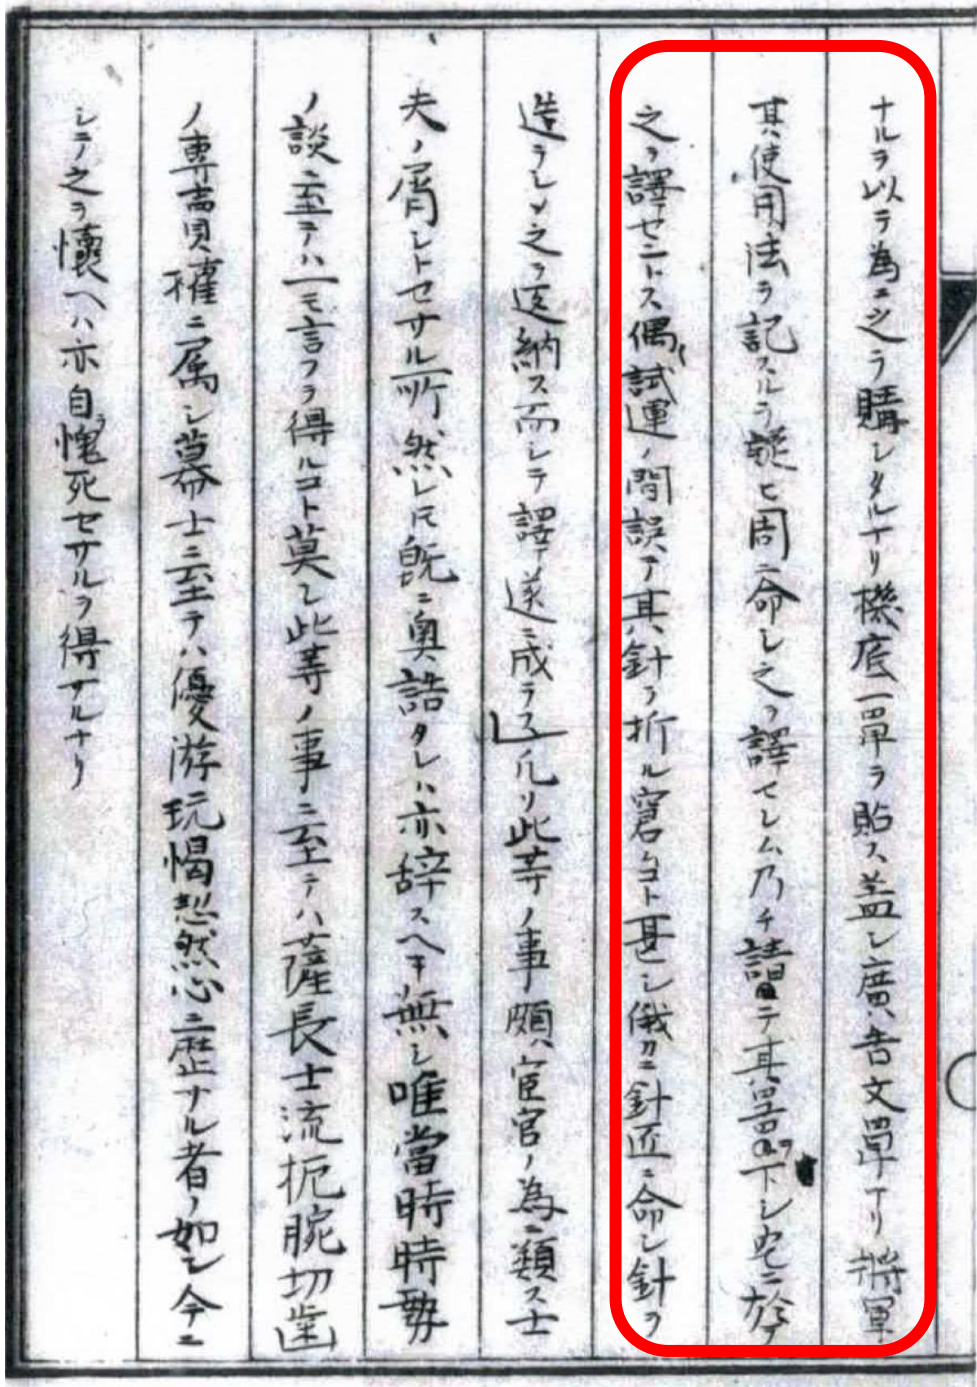 ナルヲ以テ為ニ之ヲ購レタルナリ機底一單ヲ貼ス蓋シ廣告文單ナリ將軍
其使用法ヲ記スルヲ疑ヒ周ニ命シ之ヲ譯セシム乃チ請テ其器ヲ下シ宅ニ於テ
之ヲ譯セントス偶試運ノ間誤テ其針ヲ折ル窘ムコト甚シ俄カニ針匠ニ命シ針ヲ
造ラシメ之ヲ返納ス而シテ譯遂ニ成ラス凡ソ此等ノ事頗宦官ノ為ニ類ス士
夫ノ屑シトセサル所然レ𪜈既ニ奥詰タレハ亦辞スヘキ無シ唯當時時勢
ノ談ニ至テハ一モ言フヲ得ルコト莫シ此等ノ事ニ至テハ薩長士流扼腕切歯
ノ專賣權ニ属シ幕士ニ至テハ優游玩愒恝然心ニ歴ナル者ノ如シ今ニ
シテ之ヲ懐ヘハ亦自ラ愧死セサルヲ得サルナリ